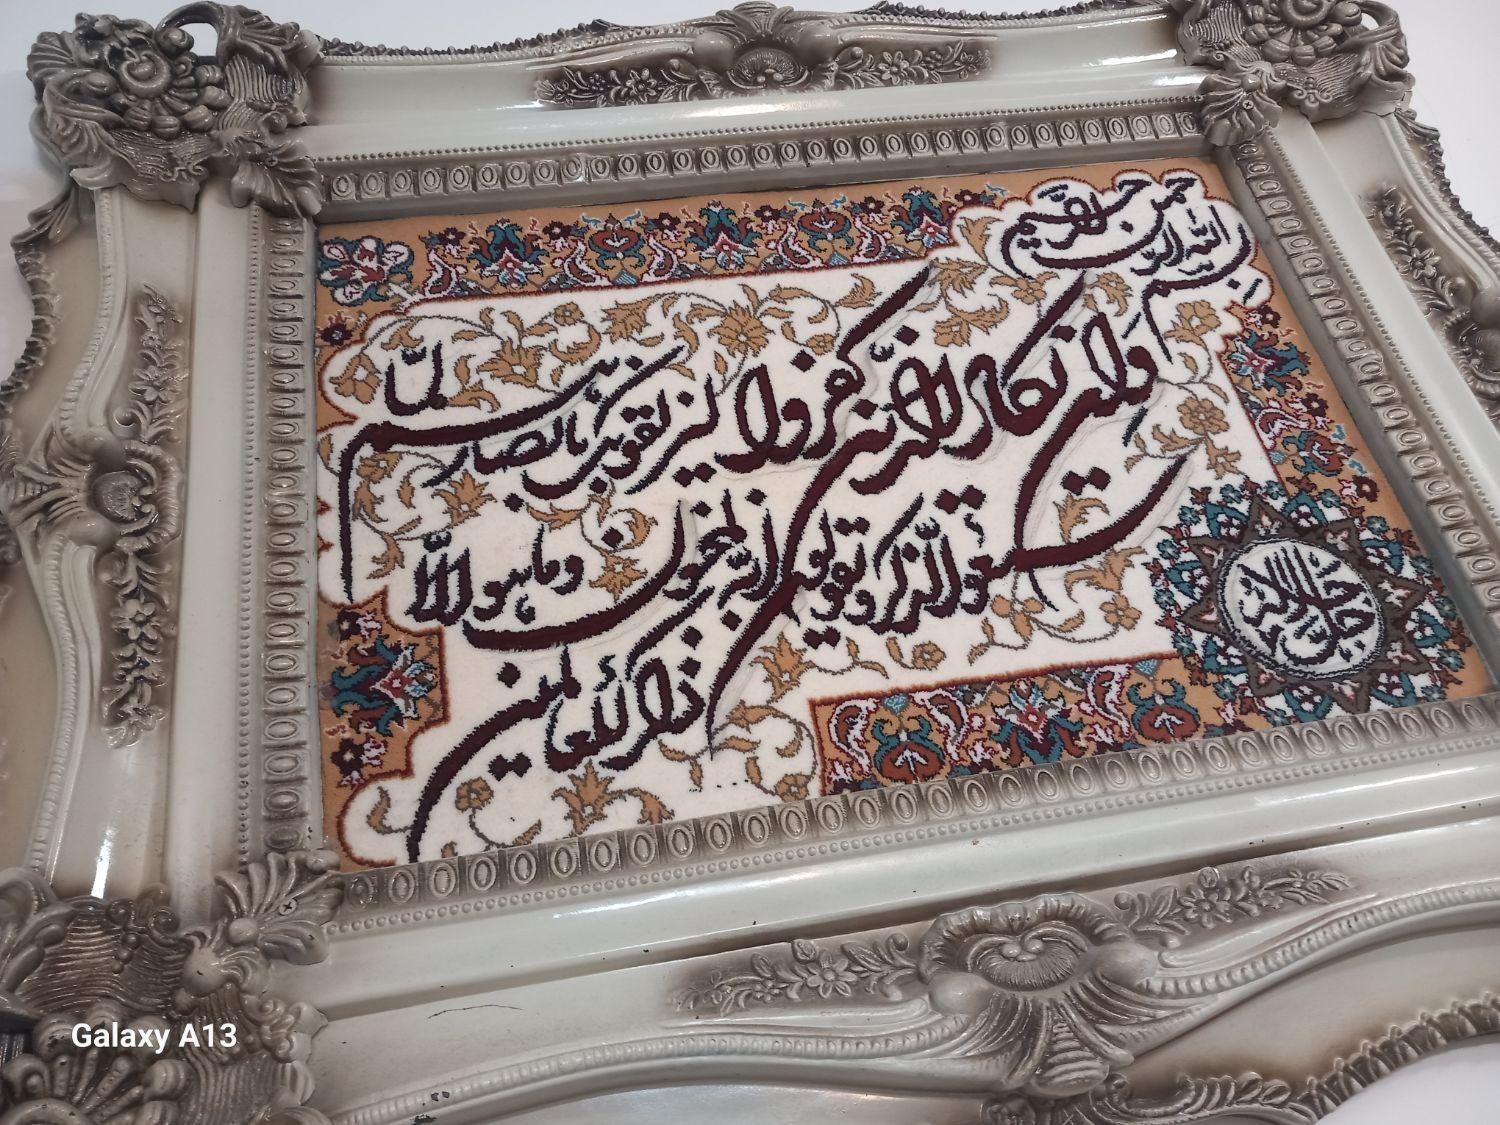 بسم الله الرحمن الرحیم
وان یکاد الذین کفروا لیزلقونک بابصارهم لما
سمعوا الذکر ویقولون انه لمجنون وما هو الا
ذکر للعالمین
Galaxy A13